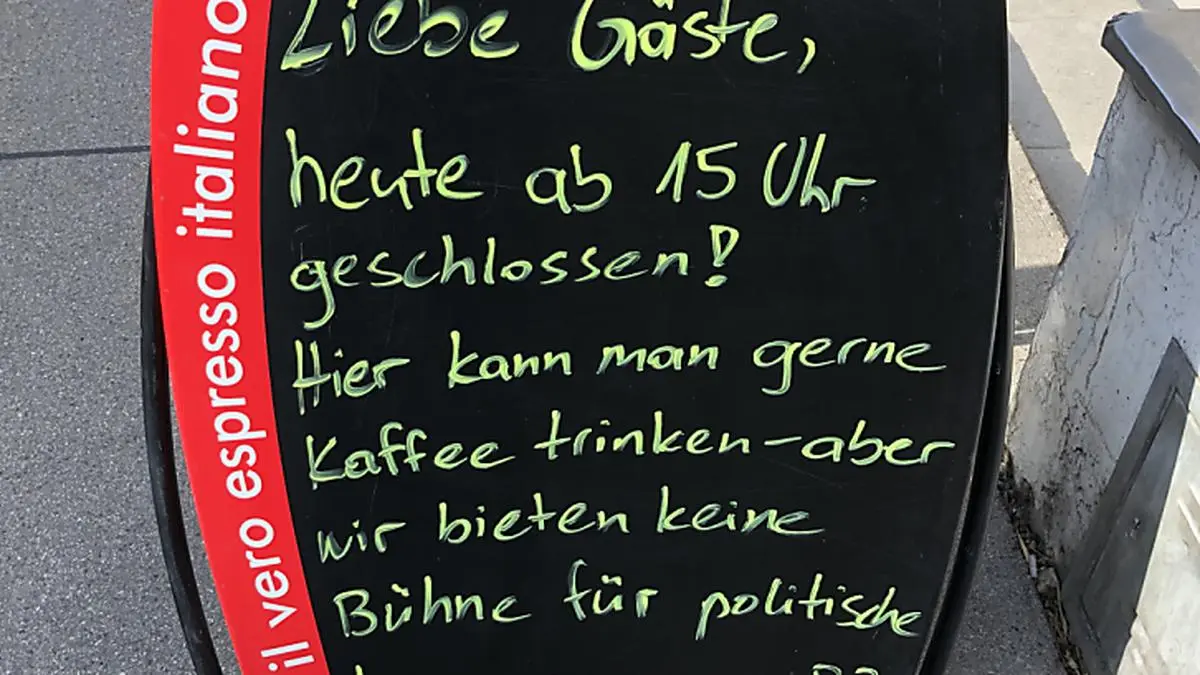 Liebe Gäste,
heute ab 15 Uhr
geschlossen!
Hier kann man gerne
Kaffee trinken-aber
wir bieten keine
Bühne für politische
il vero espresso italiano